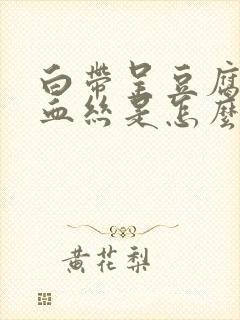 白帶呈豆腐
血絲是怎麼
黃花梨